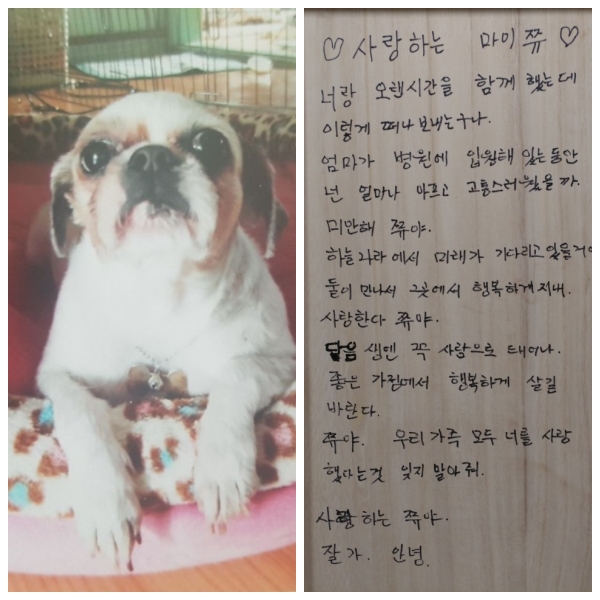 ♡ 사랑하는 마이 쮸 ♡
너랑 오랜시간을 함께 했는데
이렇게 떠나 보내는구나.
엄마가 병원에 입원해 있는동안
넌 얼마나 아프고 고통스러웠을까.
미안해 쮸야.
하늘나라에서 미래가 기다리고 있을거야
둘이 만나서 그곳에서 행복하게 지내.
사랑한다 쮸야.
담음 생엔 꼭 사람으로 태어나.
좋은 가정에서 행복하게 살길
바란다.
쮸야. 우리가족 모두 너를 사랑
했다는것 잊지 말아줘.
사랑하는 쮸야.
잘가. 안녕.